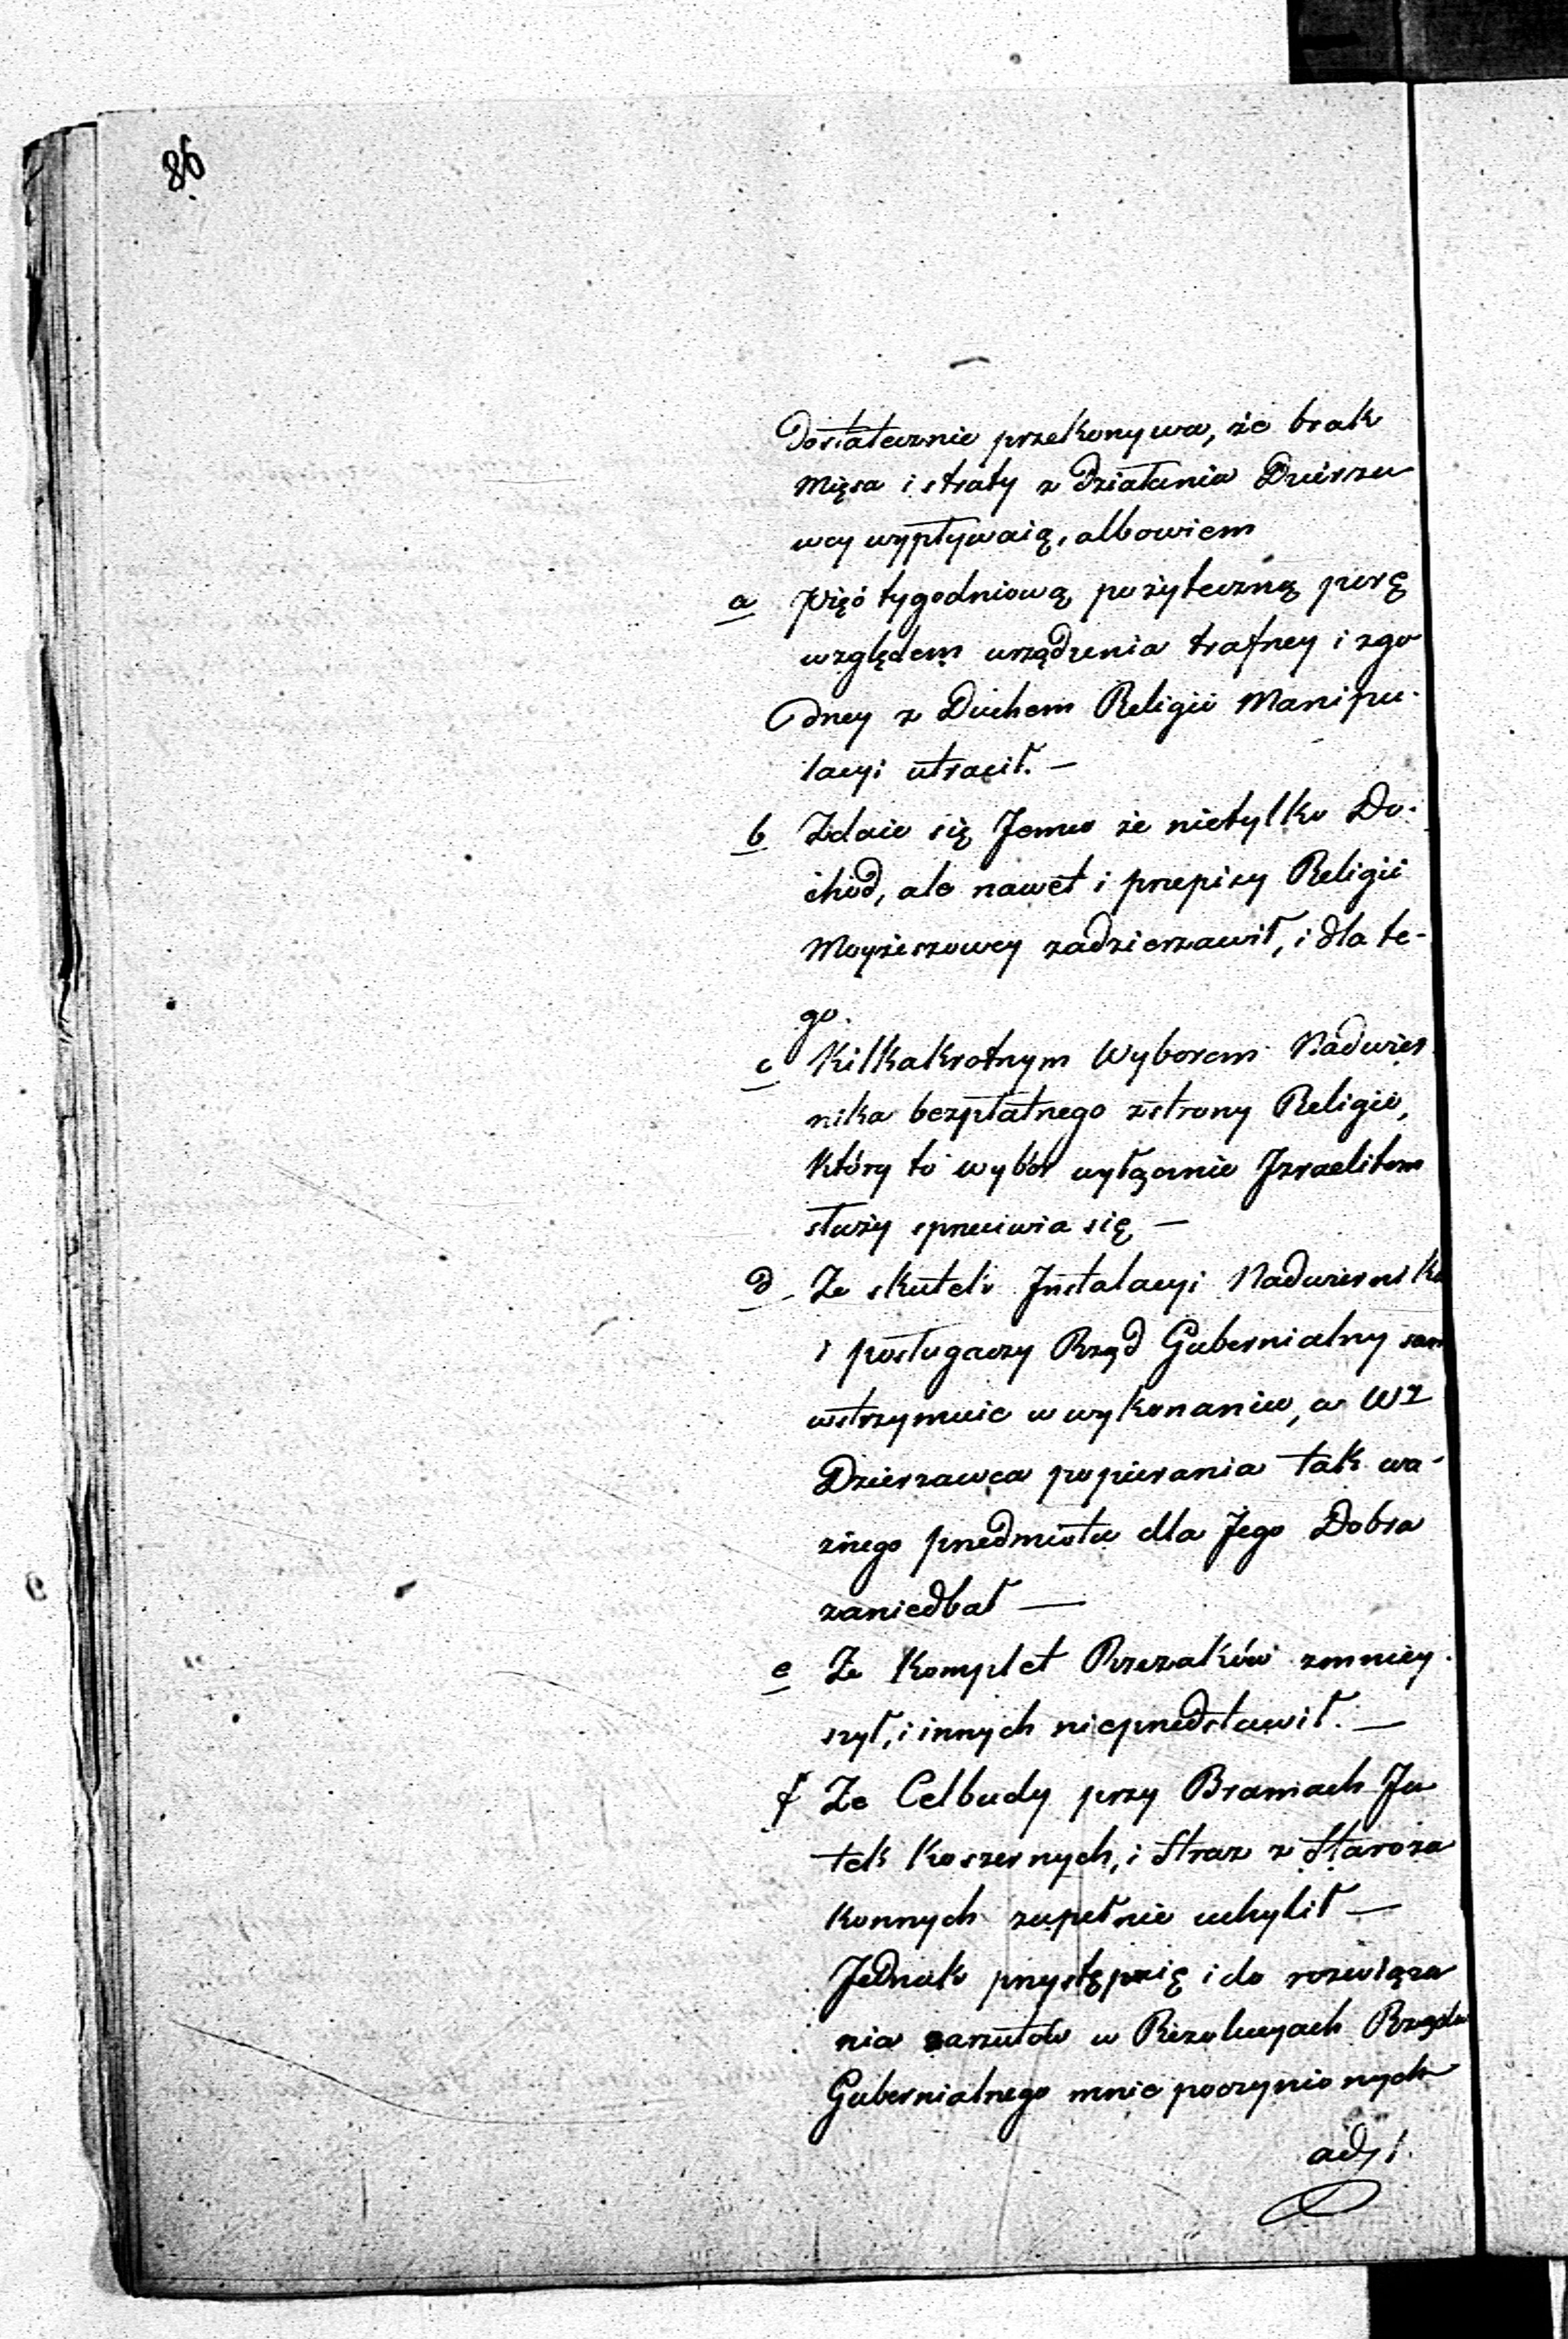 86
Dostatecznie przekonywa, że brak
Mięsa i straty z działania Dzierża
wcy wypływaią, albowiem
a Pięć tygodniową pożyteczną porę
względem urządzenia trafney i zgo
dney z Duchem Religii Manipu-
lacyi utracił. —
b Zdaie się Jemu że nietylko Do-
chód, ale nawet i przepisy Religii
Moyżeszowey zadzierzawił, i dla te-
go.
c Kilkakrotnym Wyborem Nadwier
nika bezpłatnego zstrony Religii,
który to wybór wyłącznie Izraelitom
służy sprzeciwia się —
d Ze skutek Instalacyi Nadwiernika
i posługaczy Rząd Gubernialny sam
wstrzymuie w wykonaniu, a Wz
Dzierzawca popierania tak wa-
żnego przedmiotu dla Jego Dobra
zaniedbał —
e Ze Komplet Rzezaków zmniey
szył, i innych nieprzedstawił. —
f Ze Celbudy przy Bramach Ja
tek Koszernych, i Straz z Staroza
konnych zupełnie uchylił —
Jednak przystępuię i do rozwiąza
nia zarzutów w Rezolucyach Rządu
Gubernialnego mnie poczynionych
ad 1.